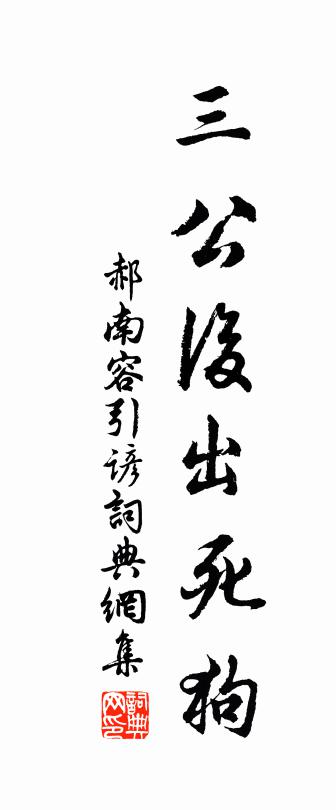 三公後出死狗
郝南容引諺詞典網集
詞典網印